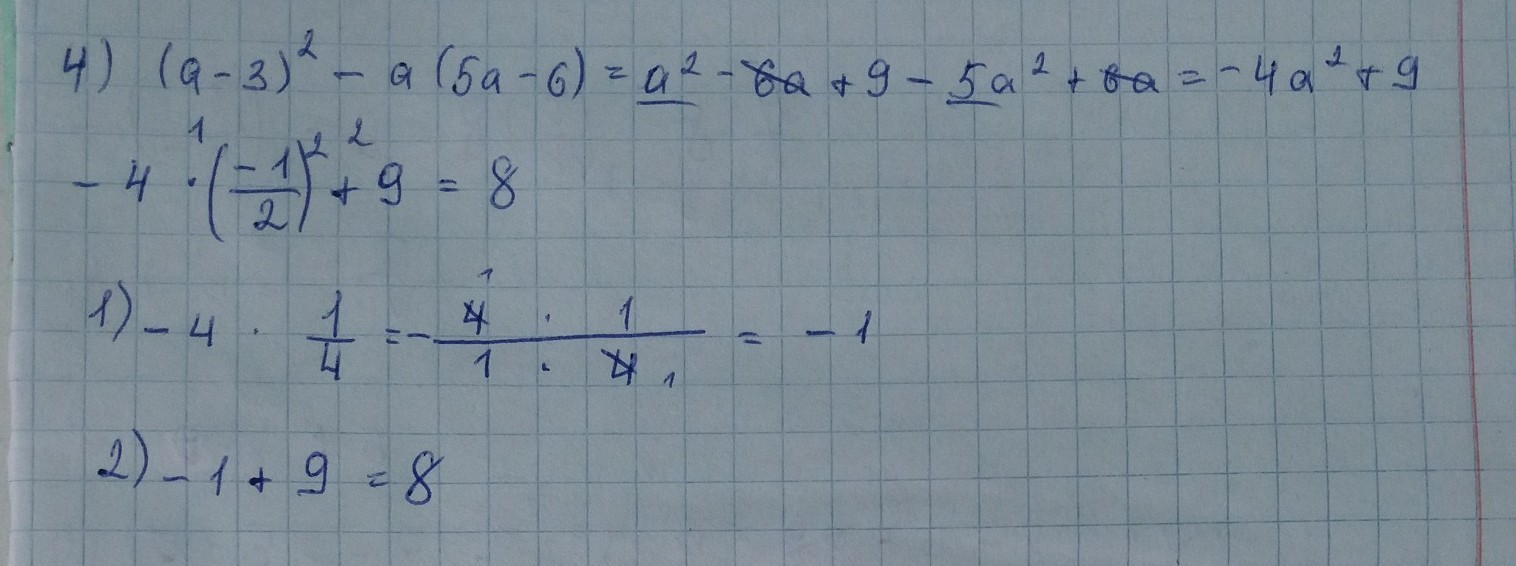 4) (a-3)² - a(5a-6) = a² - 6a + 9 - 5a² + 6a = -4a² + 9
1 2
-4 · (-1/2)² + 9 = 8
1) -4 · 1/4 = - 4 · 1 / 1 · 4 = -1
2) -1 + 9 = 8